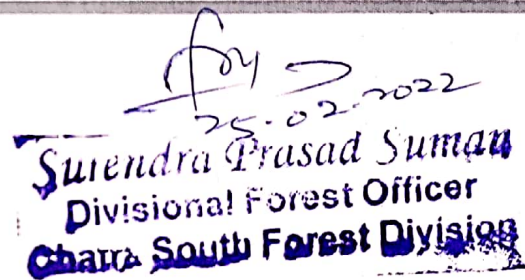 25.02.2022
Surendra Prasad Suman
Divisional Forest Officer
Chatra South Forest Division